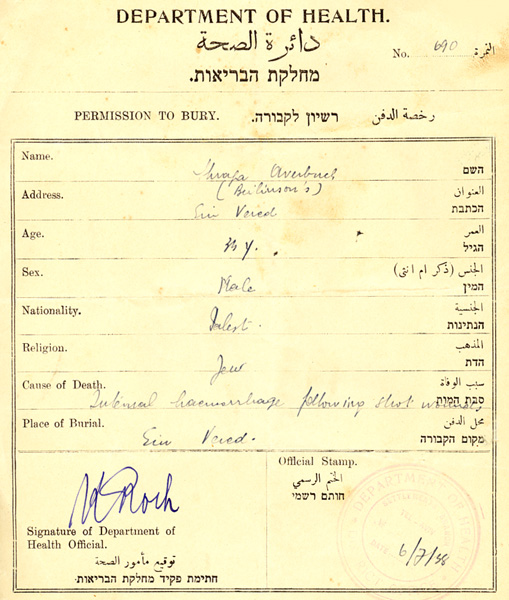 DEPARTMENT OF HEALTH.
دائرة الصحة
No. 690 النمرة
מחלקת הבריאות.
PERMISSION TO BURY. רשיון לקבורה. رخصة الدفن
Name. Averbuch השם
(Beilinson's) العنوان
Address. Ein Vered הכתבת
Age. العمر
הגיל
Sex. Male الجنس (ذكر ام انثى)
המין
Nationality. Palest. الجنسية
הנתינות
Religion. Jew المذهب
הדת
Cause of Death. سبب الوفاة
Internal haemorrhage following shot wounds סבת המות
Place of Burial. Ein Vered. محل الدفن
מקום הקבורה
Official Stamp.
الختم الرسمي
חותם רשמי
DEPARTMENT OF HEALTH
6/7/38
Signature of Department of
Health Official.
توقيع مأمور الصحة
חתימת פקיד מחלקת הבריאות.